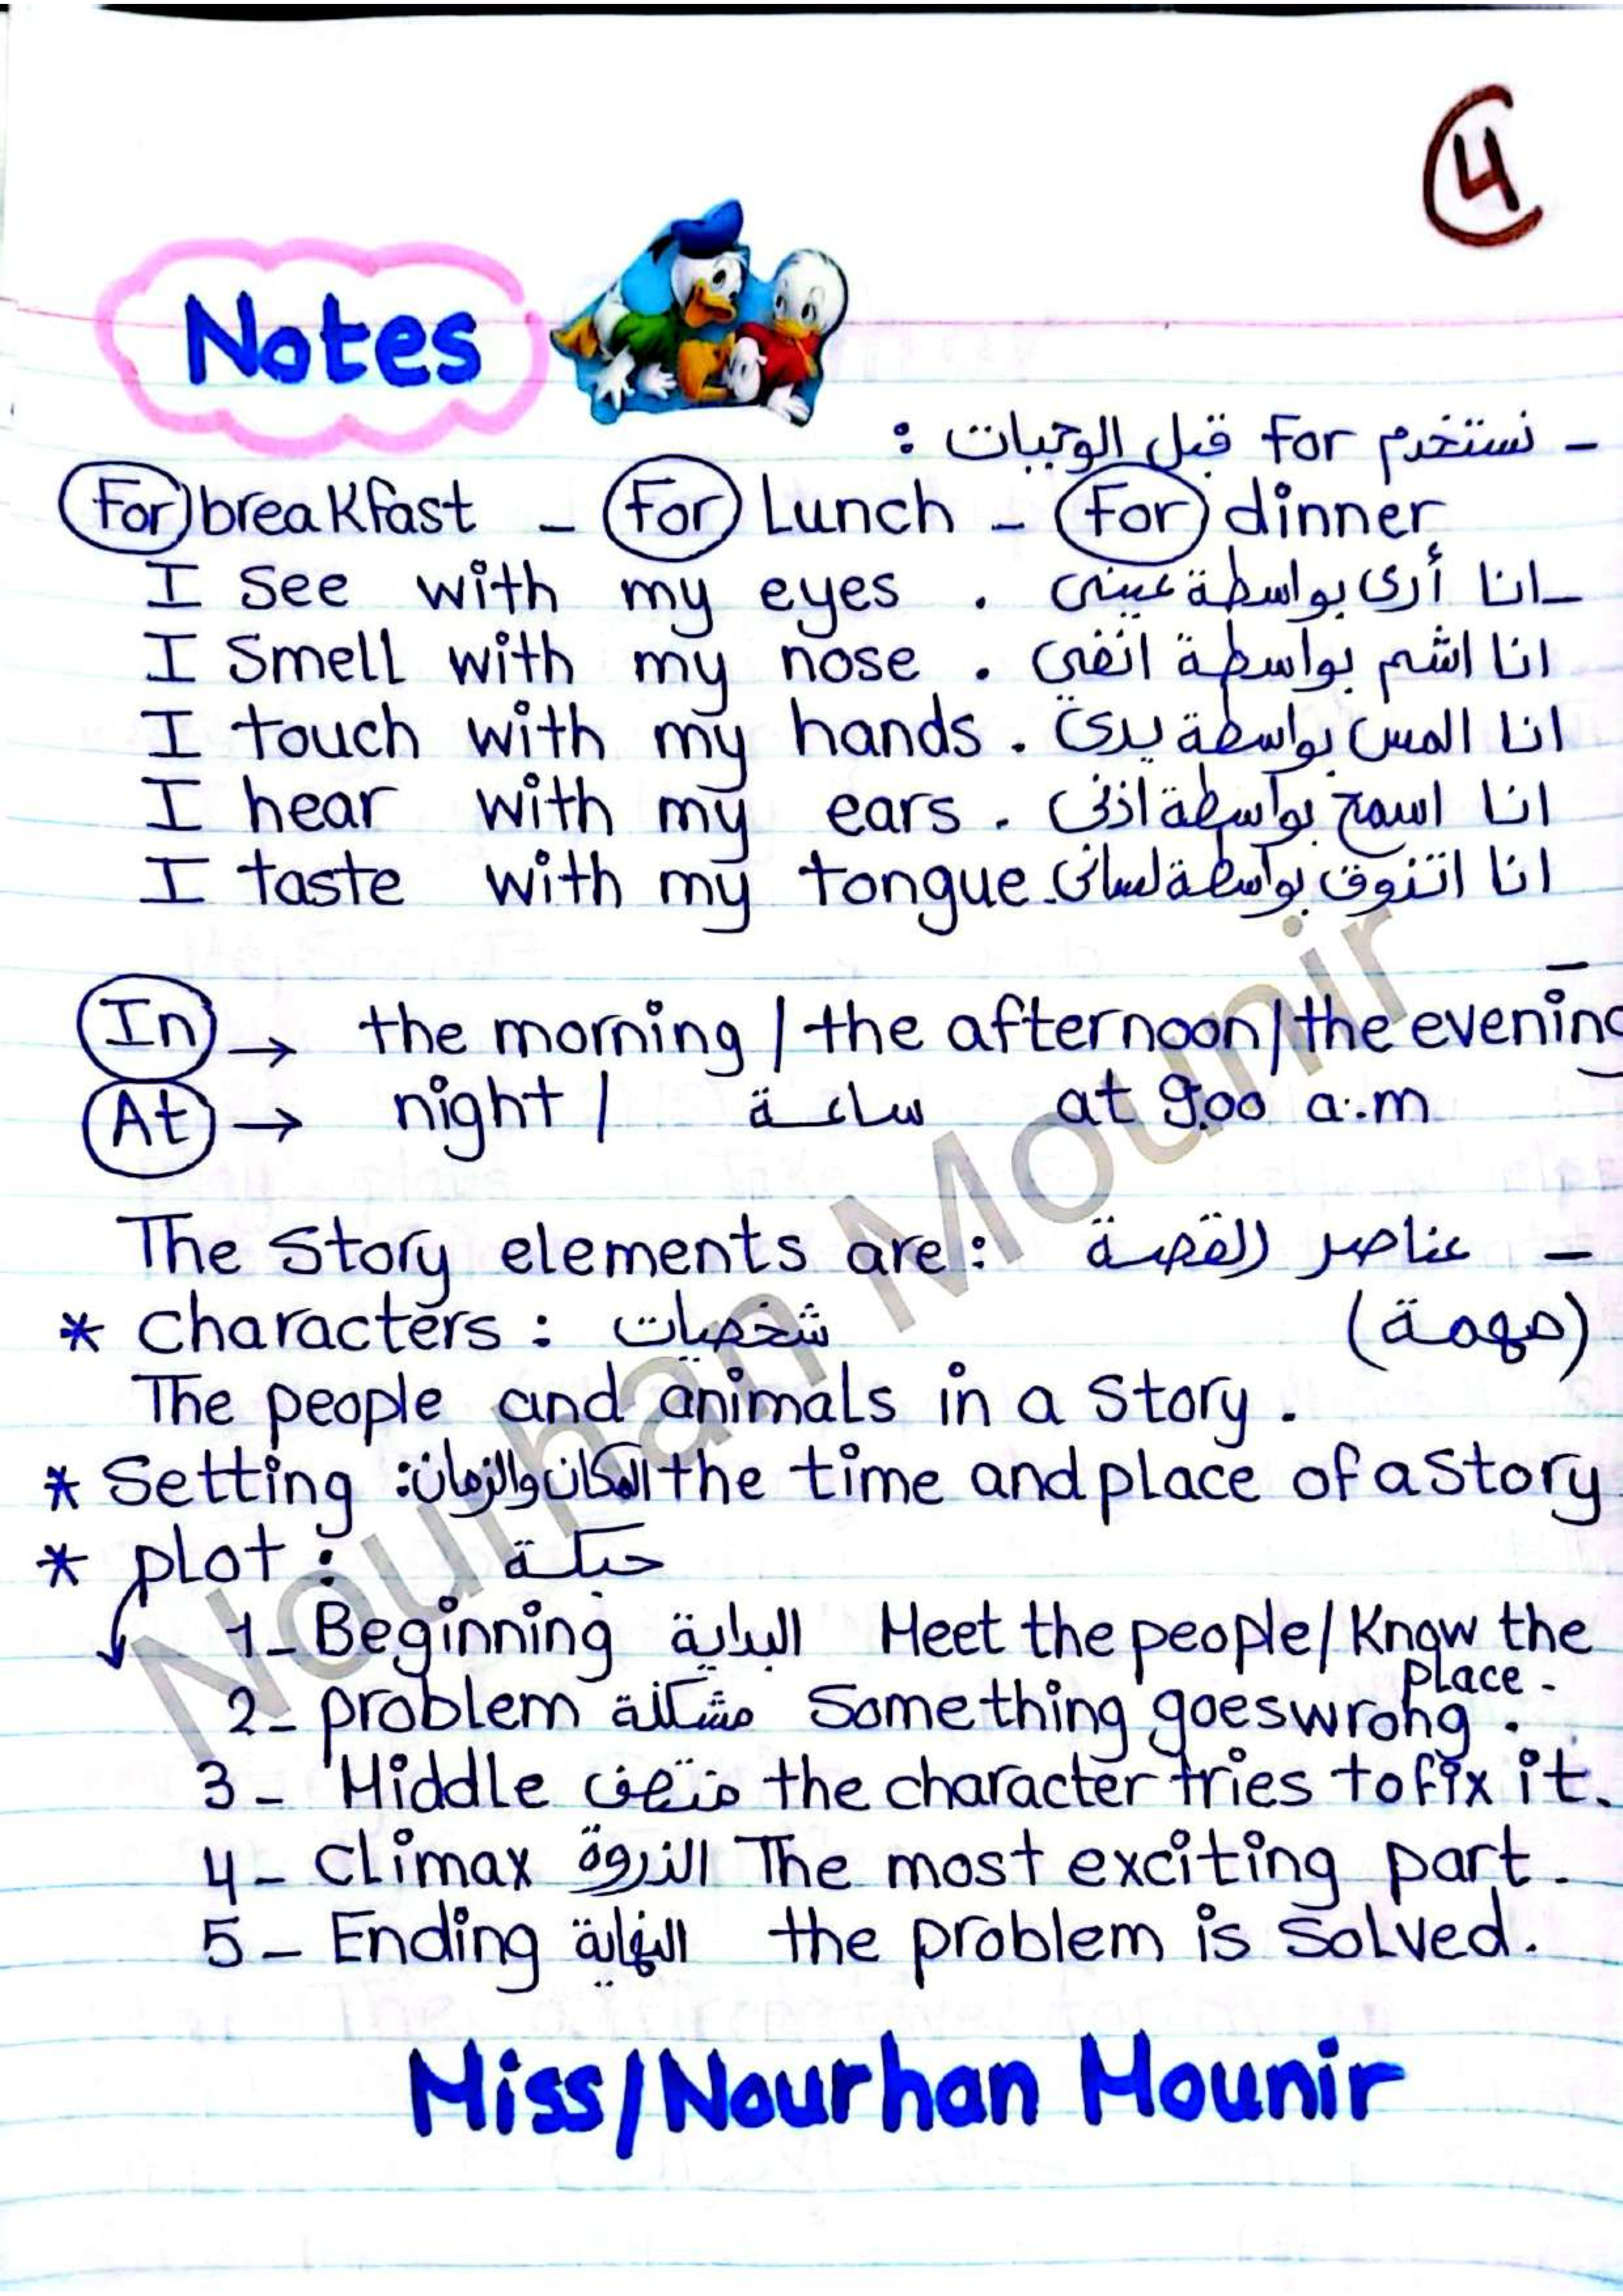 4
Notes
- نستخدم For قبل الوجبات :
For breakfast - For Lunch - For dinner
I see with my eyes . -انا أرى بواسطة عينى
I smell with my nose . انا اشم بواسطة انفى
I touch with my hands . انا المس بواسطة يدى
I hear with my ears . انا اسمع بواسطة اذنى
I taste with my tongue. انا اتذوق بواسطة لسانى
In → the morning / the afternoon / the evening
At → night / ساعة at 9:00 a.m
The Story elements are: عناصر القصة -
* characters : شخصيات (مهمة)
The people and animals in a story .
* Setting المكان والزمان: the time and place of a story
* plot : حبكة
1- Beginning البداية Meet the people / Know the place .
2- problem مشكلة Something goes wrong .
3- Middle منتصف the character tries to fix it.
4- Climax الذروة The most exciting part .
5- Ending النهاية the problem is solved .
Miss/Nourhan Mounir
Nourhan Mounir